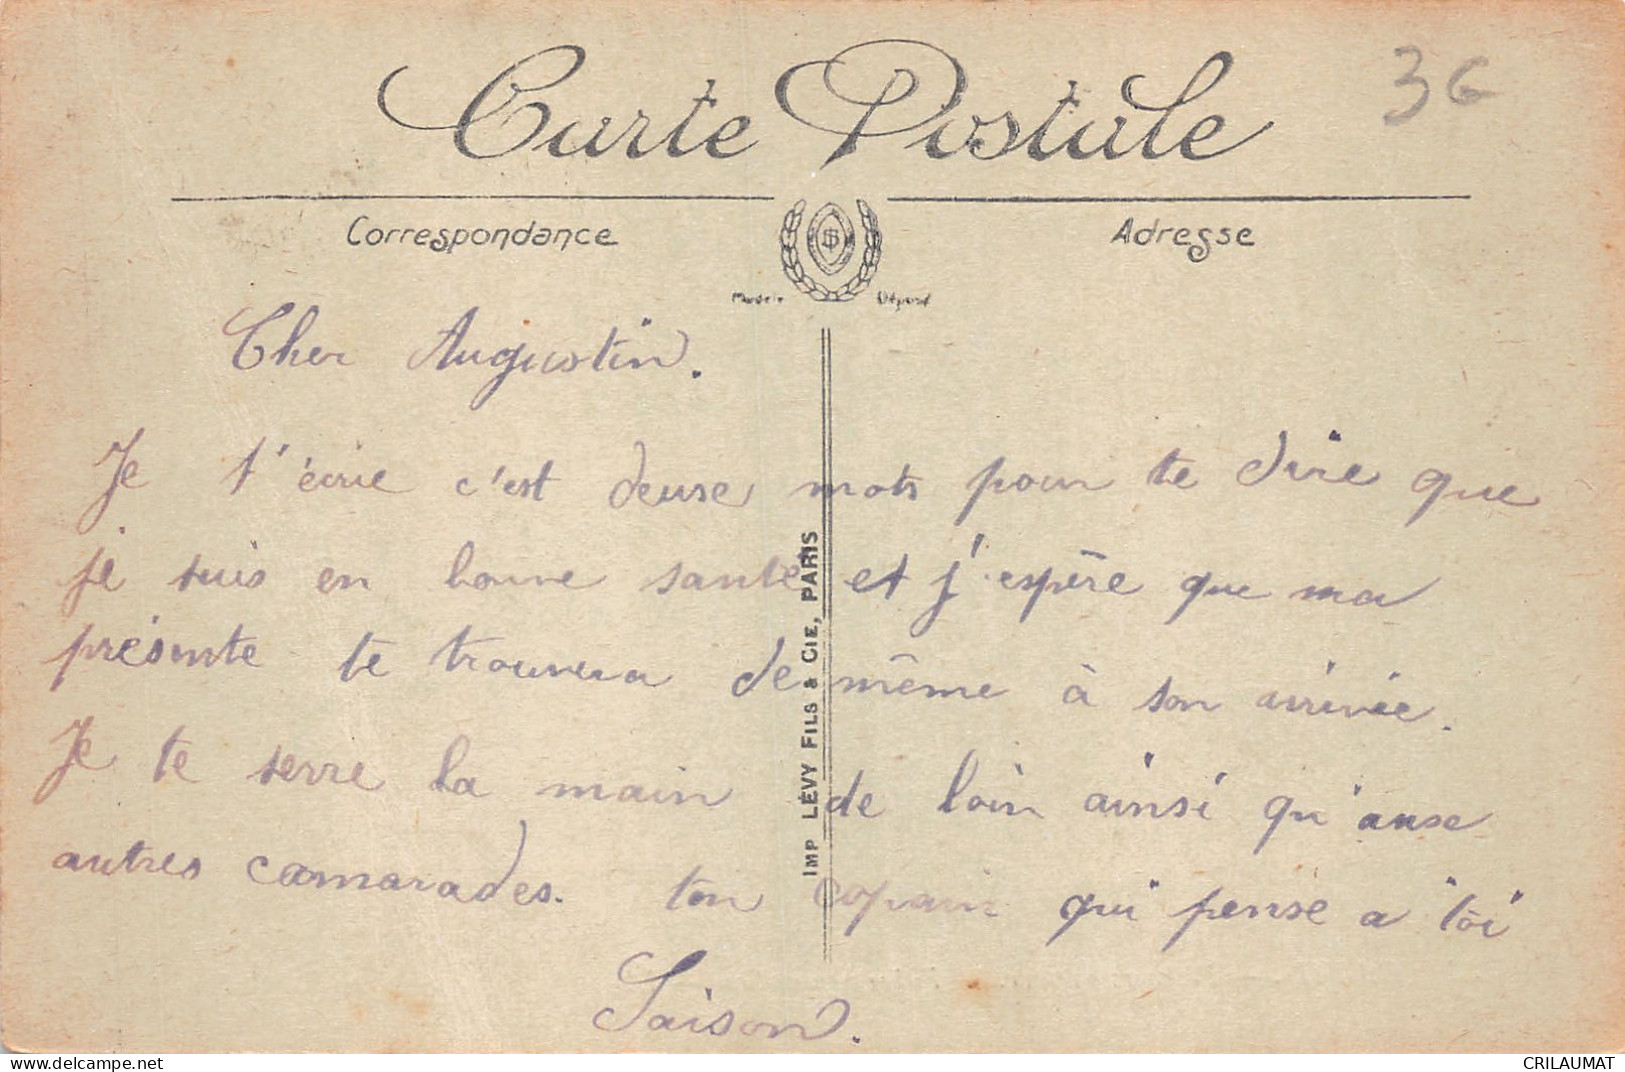 36
Carte Postale
Correspondance
Adresse
Modèle Déposé
Cher Augustin.
Je t'écrie c'est deuse mots pour te dire que
je suis en bonne santé et j'espère que ma
présente te trouvera de même à son arrivée.
Je te serre la main de loin ainsi qu'ause
autres camarades. ton copain qui pense a toi
Saison.
IMP LÉVY FILS & CIE, PARIS
www.delcampe.net
CRILAUMAT